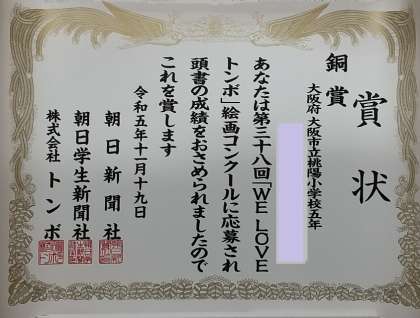 賞状
銅賞
大阪府 大阪市立桃陽小学校五年
あなたは第三十八回「WE LOVE
トンボ」絵画コンクールに応募され
頭書の成績をおさめられましたので
これを賞します
令和五年十一月十九日
朝日新聞社
朝日学生新聞社
株式会社 トンボ